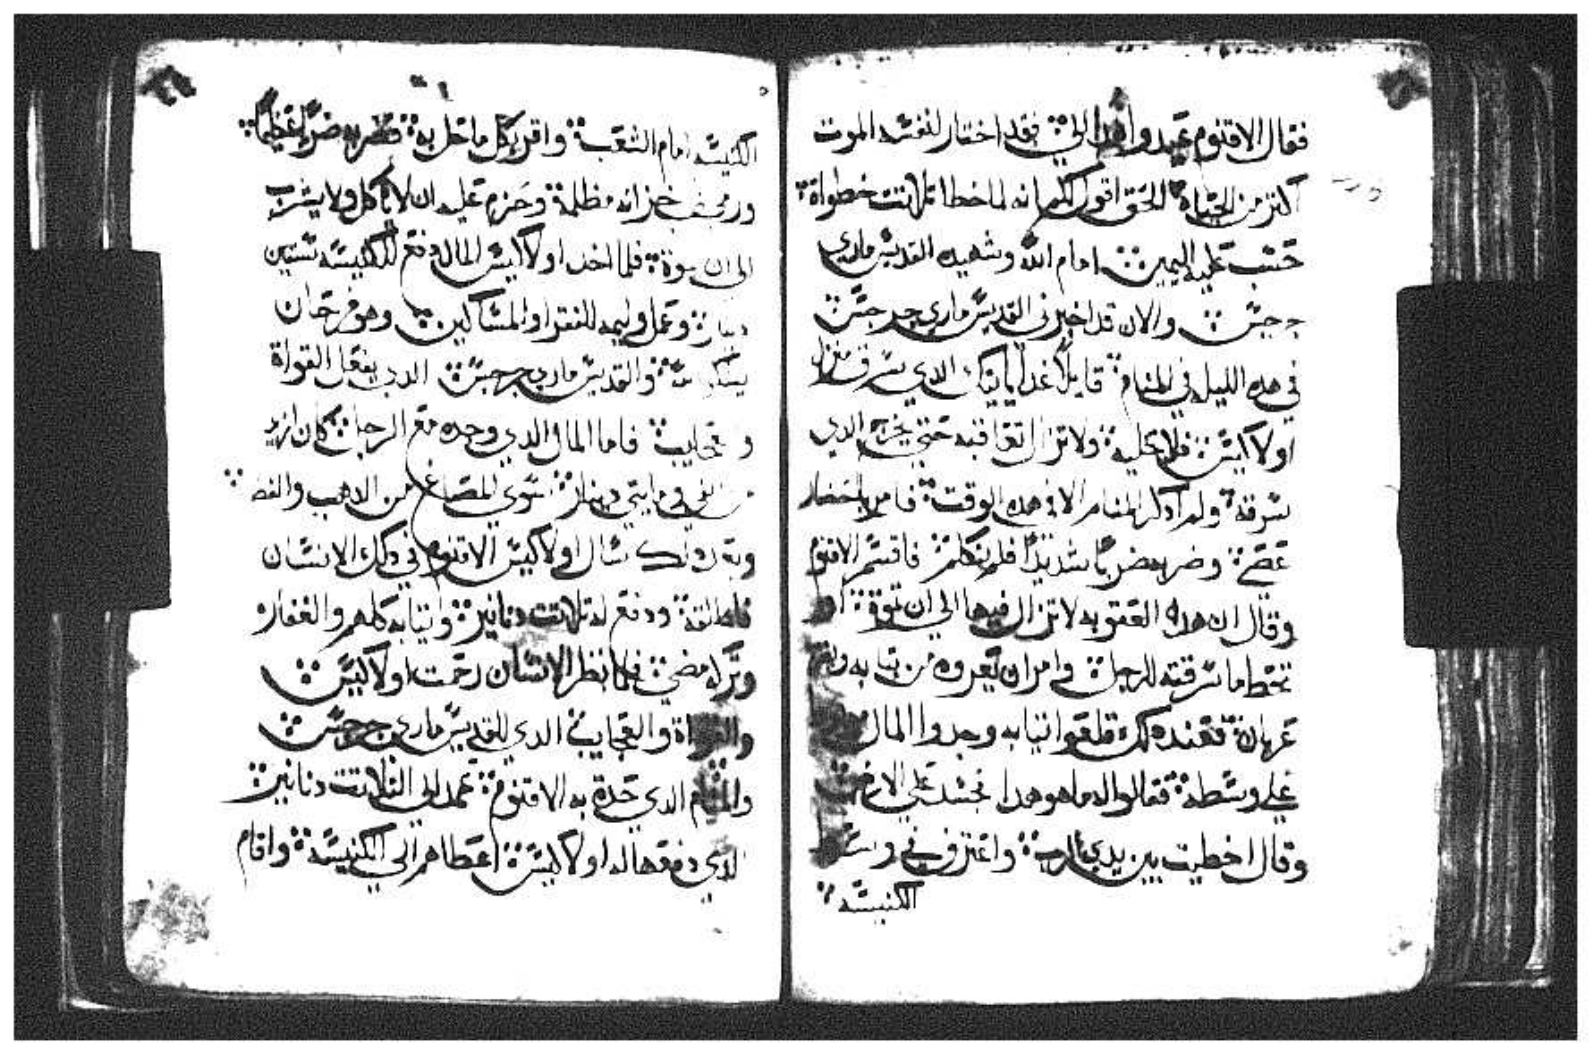 فقال الاقنوم عبدوا هدا الي فقد اختار لنفسه الموت
اكتر من الحياة الحق اقول لكم انه لما خطا تلاتت خطواة
حسب عليه اليمين امام الله وشهيده القديس ماري
جرجس والان قد اخبرني القديس ماري جرجس
في هده الليله في المنام قايلا غدا ياتيك الدي سرق منزل
اولاكيس فلا تخليه ولا تزال تعاقبه حتي يخرج الدي
سرقه ولم ادكر المنام الا في هده الوقت فامر باحضار
عصي وضربه ضربا شديدا فلم يتكلم فاقسم الاقنوم
وقال ان هده العقوبه لا تزال فيها الي ان تموة او
تحط ما سرقته للرجل وامر ان يعروه من تيابه
عريان فعند دلك قلعوا تيابه وجدوا المال
علي وسطه فقالوا له ما هو هدا فسجد علي الارض
وقال اخطيت بين يدي الرب واعترف في وسط
الكنيسه
الكنيسه امام الشعب واقر بكل ما حل به فضربه ضربا عظيما
خزانه مظلمة وحرم عليه ان لا ياكل ولا يشرب
الي ان يموة فلما اخد اولاكيس المال دفع للكنيسه ستين
دينار وعمل وليمه للفقرا والمساكين وهو فرحان
يشكر الله والقديس ماري جرجس الدي يفعل القواة
والعجايب فاما المال الدي وجده مع الرجل كان ازيد
من الفي ومايتي دينار سوي المصاغ من الدهب والفضه
وبعد دلك سال اولاكيس الاقنوم في دلك الانسان
فاطلقه ودفع له تلاتت دنانير وتيابه كلهم والغفاره
وتركه مضي فلما نظر الانسان رحمت اولاكيس
والقواة والعجايب الدي للقديس ماري جرجس
والمنام الدي حدة به الاقنوم عمد الي التلاتت دنانير
الدي دفعها له اولاكيس اعطاهم الي الكنيسه واقام